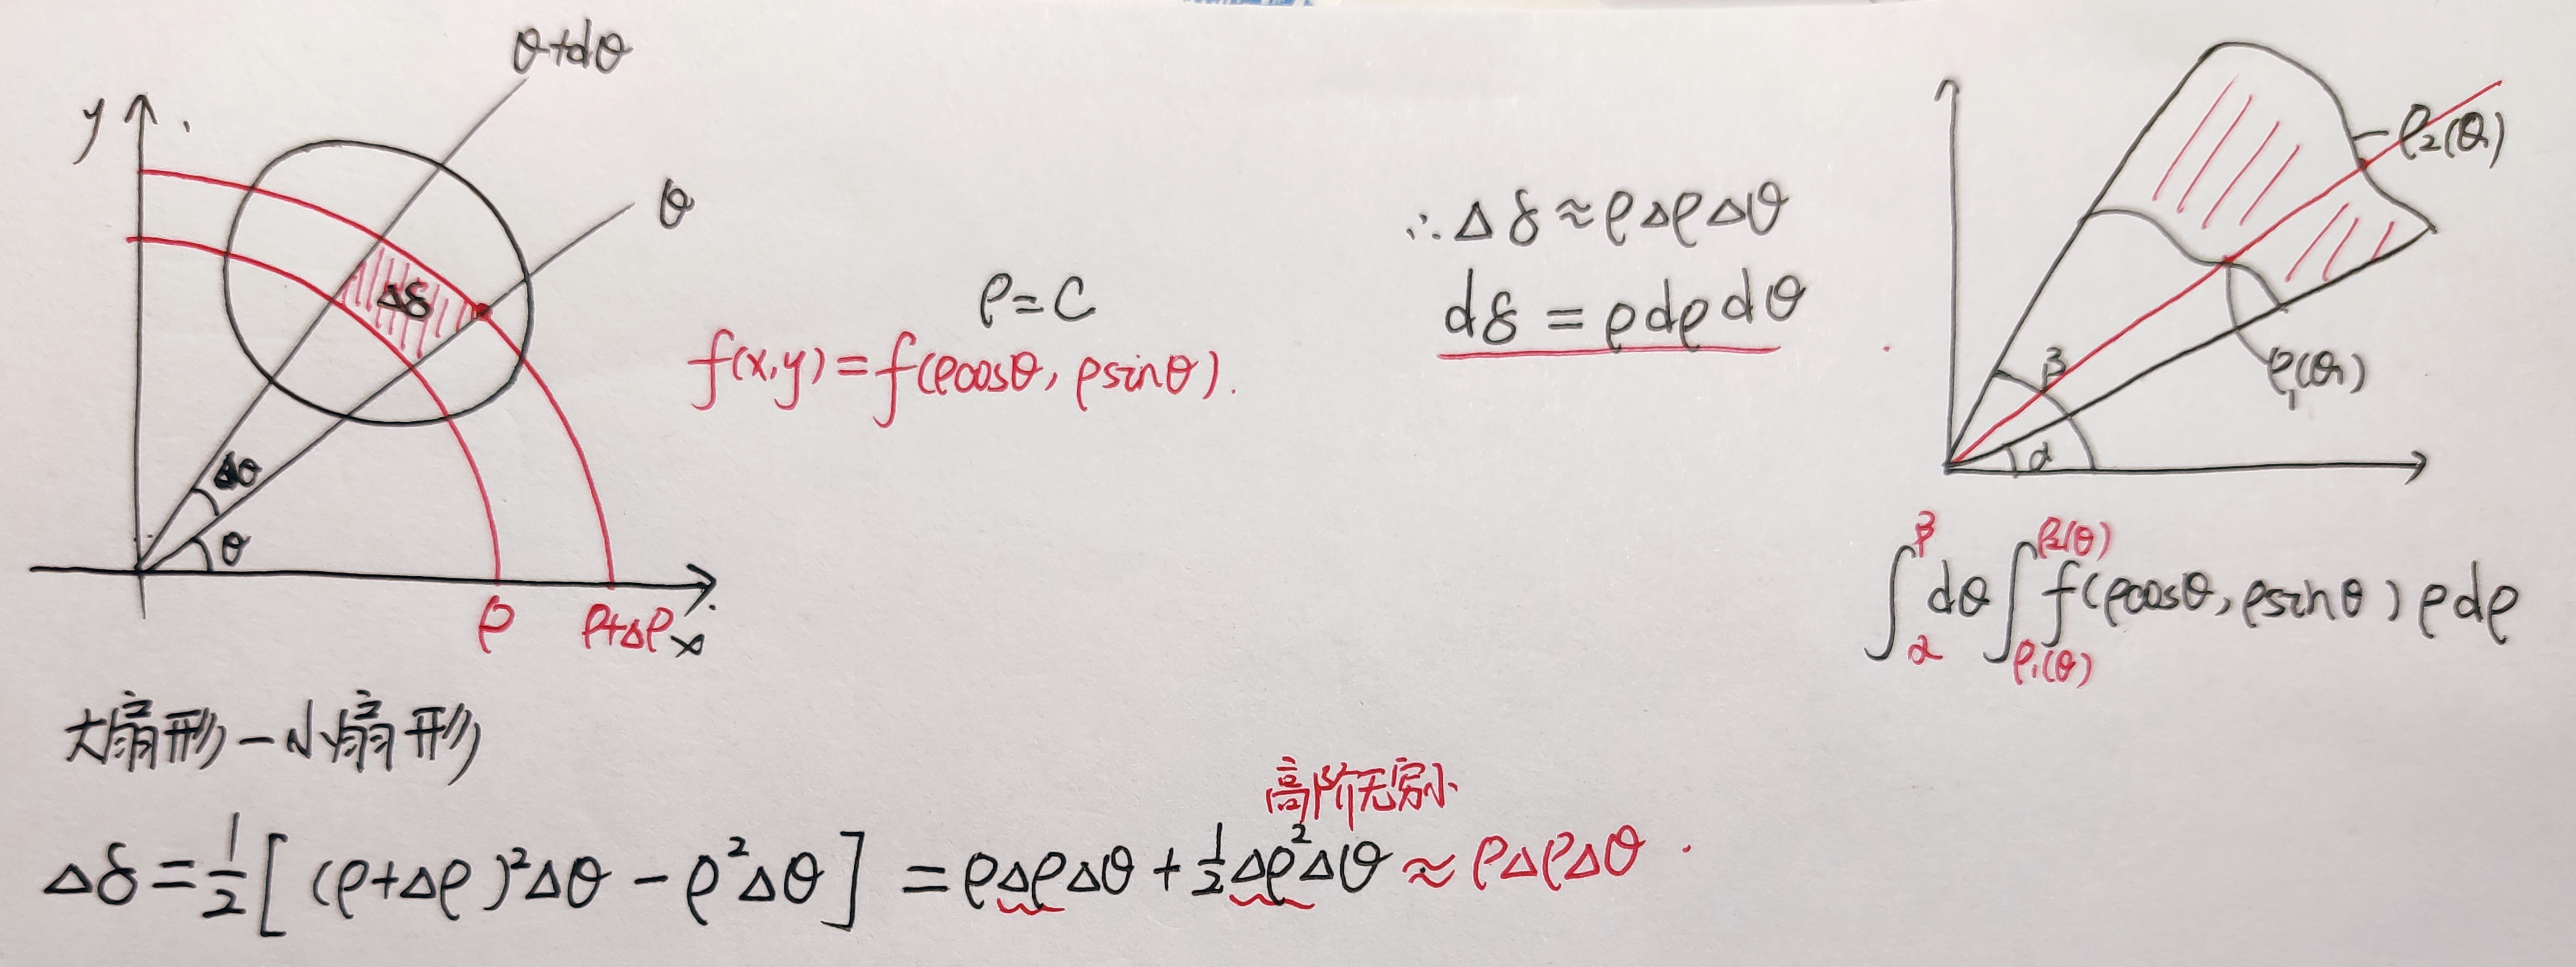 θ+dθ
y
θ
Δδ
Δθ
θ
ρ
ρ+Δρ
x
ρ=C
f(x,y)=f(ρcosθ, ρsinθ).
∴Δδ≈ρΔρΔθ
dδ=ρdρdθ
ρ₂(θ)
β
ρ₁(θ)
α
∫_α^β dθ ∫_{ρ₁(θ)}^{ρ₂(θ)} f(ρcosθ, ρsinθ)ρdρ
大扇形-小扇形
高阶无穷小
Δδ=1/2[(ρ+Δρ)²Δθ-ρ²Δθ]=ρΔρΔθ+1/2Δρ²Δθ≈ρΔρΔθ.